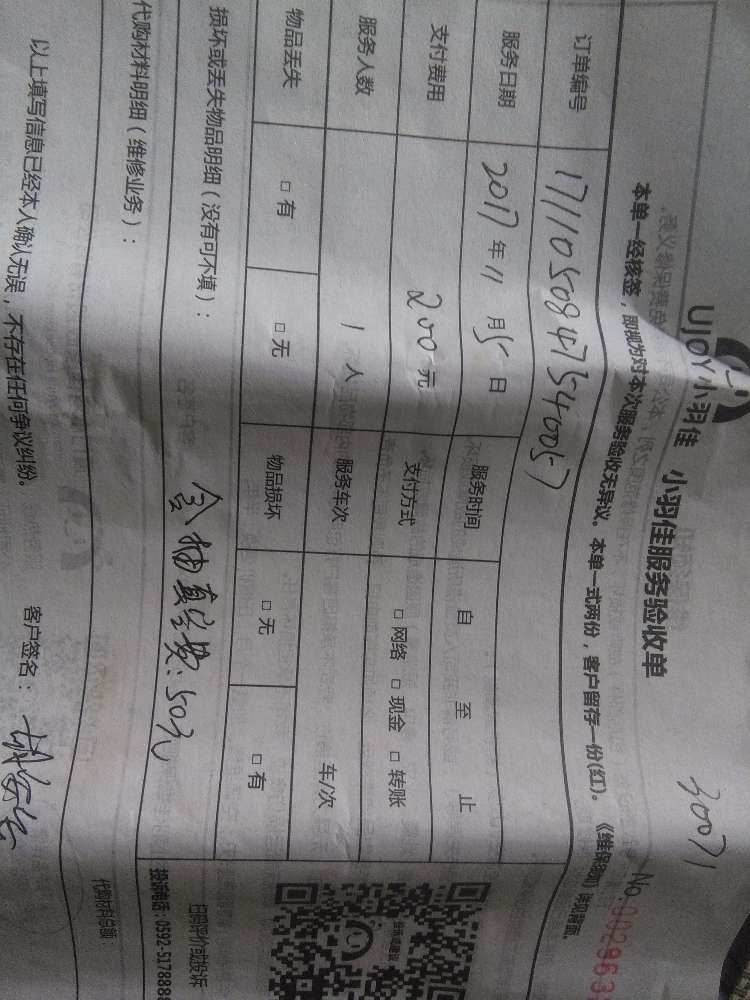 30071
UJOY小羽佳 小羽佳服务验收单
No.0002963
本单一经核签，即视为对本次服务验收无异议。本单一式两份，客户留存一份(红)。《维保细则》详见背面。
订单编号 1711050847540057
服务日期 2017年11月5日 服务时间 自 至 止
支付费用 200元 支付方式 □网络 □现金 □转账
服务人数 1人 服务车次 车/次
物品丢失 □有 □无 物品损坏 □无 □有
损坏或丢失物品明细（没有可不填）：
含抽真空费：50元
扫码评价或投诉
投诉电话：0592-5178888
代购材料明细（维修业务）：
代购材料总额：
以上填写信息已经本人确认无误，不存在任何争议纠纷。 客户签名：